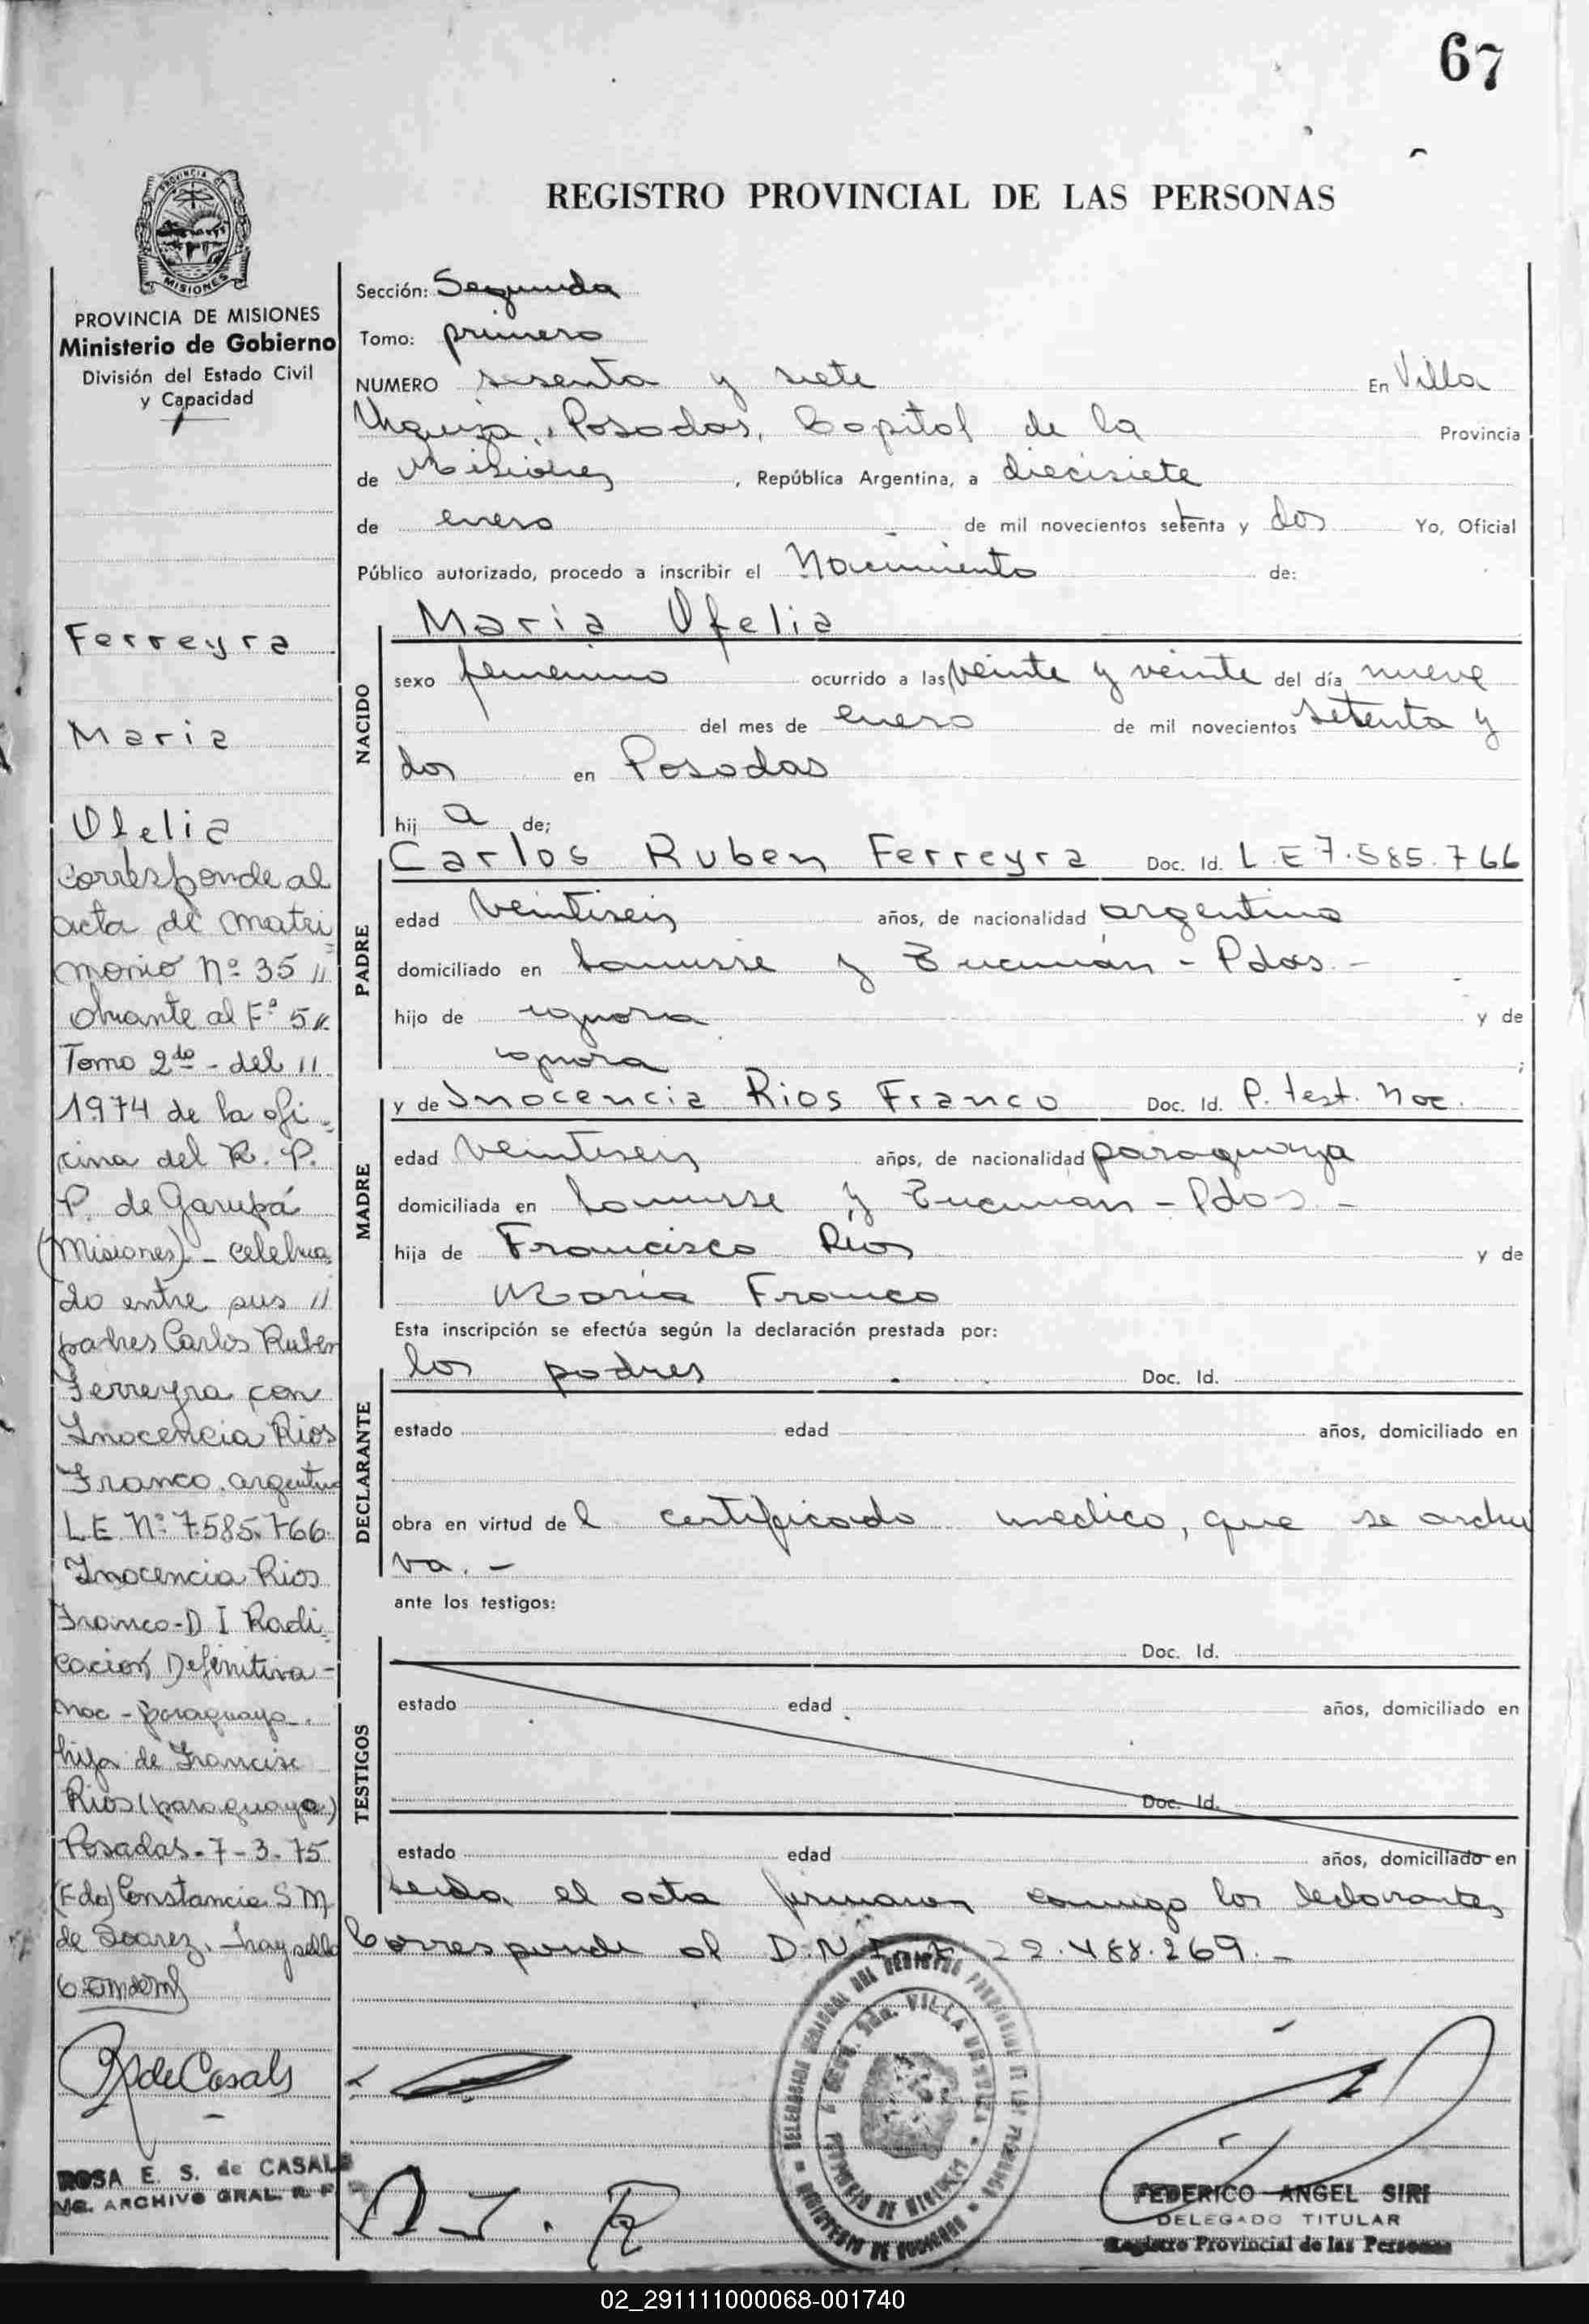 67
REGISTRO PROVINCIAL DE LAS PERSONAS
PROVINCIA DE
MISIONES
PROVINCIA DE MISIONES
Ministerio de Gobierno
División del Estado Civil
y Capacidad
Ferreyra
Maria
Ofelia
Corresponde al
acta de matri
monio Nº 35 //
obrante al Fº 5 //
Tomo 2do - del //
1974 de la ofi-
cina del R. P.
P. de Garupá
(Misiones) - celebra
do entre sus //
padres Carlos Ruben
Ferreyra con
Inocencia Rios
Franco. argentino
L.E. Nº 7585.766.
Inocencia Rios
Franco - D I Radi-
cación Definitiva -
noc - paraguaya.
hija de Francisc
Rios (paraguayo)
Posadas - 7 - 3 - 75
(Fdo) Constancia S M
de Soarez. hay sello
R de Casals
ROSA E. S. de CASALS
ARCHIVO GRAL. R. P.
Sección: Segunda
Tomo: primero
NUMERO sesenta y siete En Villa
Urquiza, Posadas, Capital de la Provincia
de Misiones, República Argentina, a diecisiete
de enero de mil novecientos setenta y dos Yo, Oficial
Público autorizado, procedo a inscribir el Nacimiento de:
NACIDO
Maria Ofelia
sexo femenino ocurrido a las veinte y veinte del día nueve
del mes de enero de mil novecientos setenta y
dos en Posadas
hij a de;
PADRE
Carlos Ruben Ferreyra Doc. Id. L.E 7.585.766
edad veintiseis años, de nacionalidad argentino
domiciliado en Lanusse y Tucumán - Pdas. -
hijo de ignora y de
ignora ;
MADRE
y de Inocencia Rios Franco Doc. Id. P. test. Noc.
edad veintiseis años, de nacionalidad paraguaya
domiciliada en Lanusse y Tucuman - Pdas. -
hija de Francisco Rios y de
Maria Franco
Esta inscripción se efectúa según la declaración prestada por:
DECLARANTE
los padres Doc. Id.
estado edad años, domiciliado en
obra en virtud de l certificado medico, que se archi
va. -
ante los testigos:
TESTIGOS
Doc. Id.
estado edad años, domiciliado en
Doc. Id.
estado edad años, domiciliado en
Leida el acta firmaron conmigo los declarantes
Corresponde al D.N.I. Nº 22.488.269. -
VILLA URQUIZA
FEDERICO ANGEL SIRI
DELEGADO TITULAR
Registro Provincial de las Personas
02_291111000068-001740